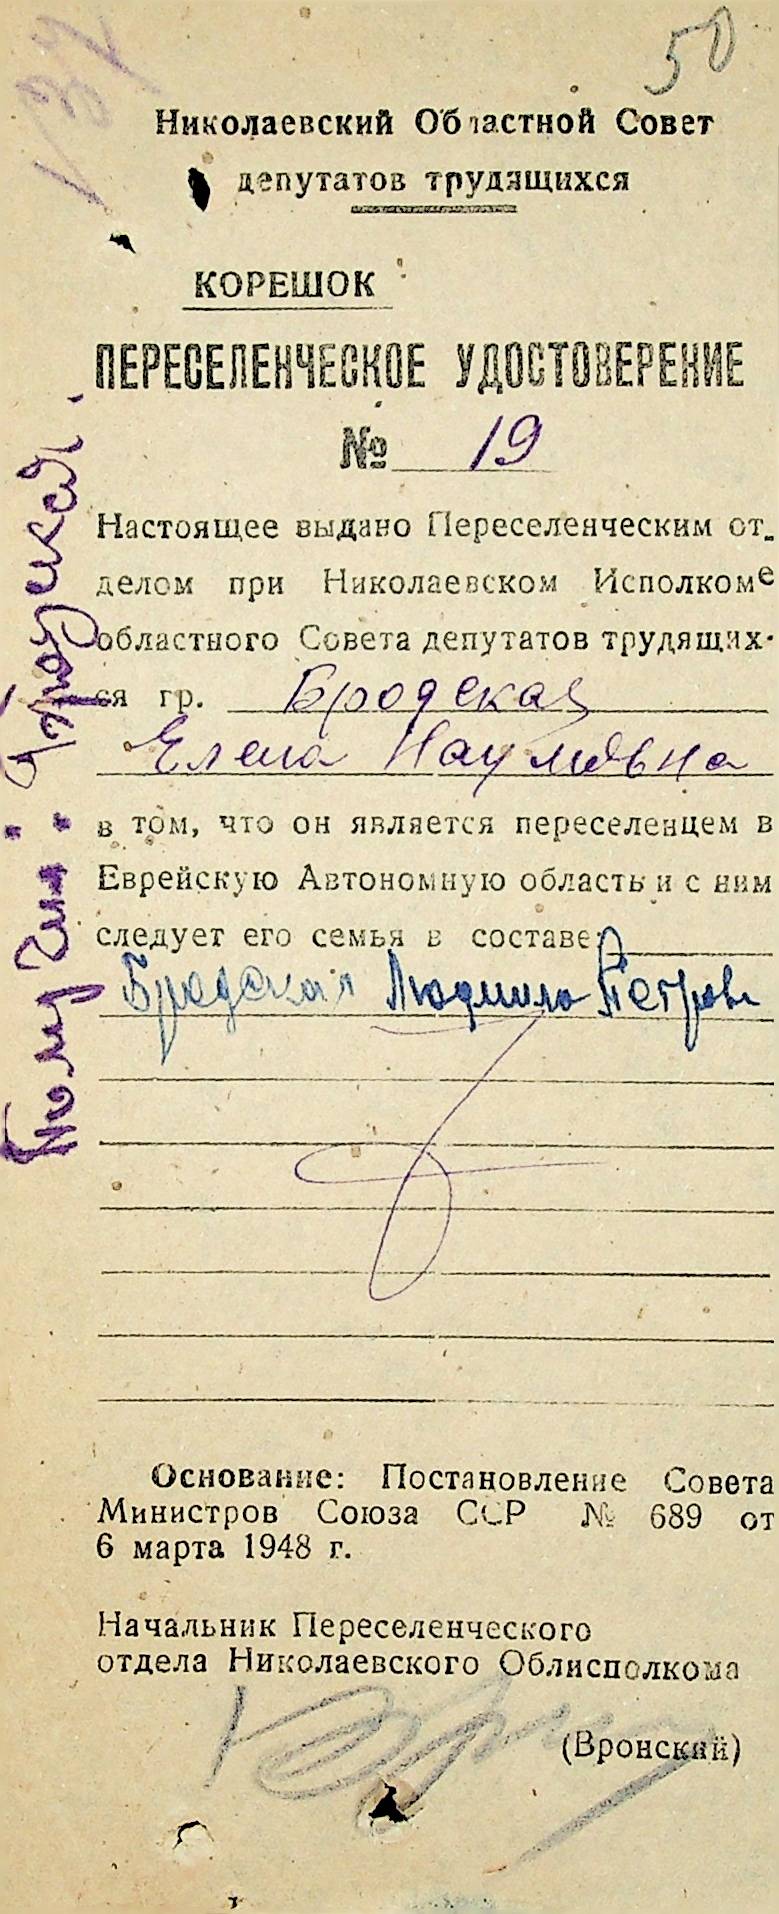 50
Николаевский Областной Совет
депутатов трудящихся
КОРЕШОК
ПЕРЕСЕЛЕНЧЕСКОЕ УДОСТОВЕРЕНИЕ
№ 19
Настоящее выдано Переселенческим от-
делом при Николаевском Исполкоме
областного Совета депутатов трудящих-
ся гр. Бродская
Елена Наумовна
в том, что он является переселенцем в
Еврейскую Автономную область и с ним
следует его семья в составе:
Бродская Людмила Петровн
Основание: Постановление Совета
Министров Союза ССР № 689 от
6 марта 1948 г.
Начальник Переселенческого
отдела Николаевского Облисполкома
(Вронский)
Получил: Бродская.